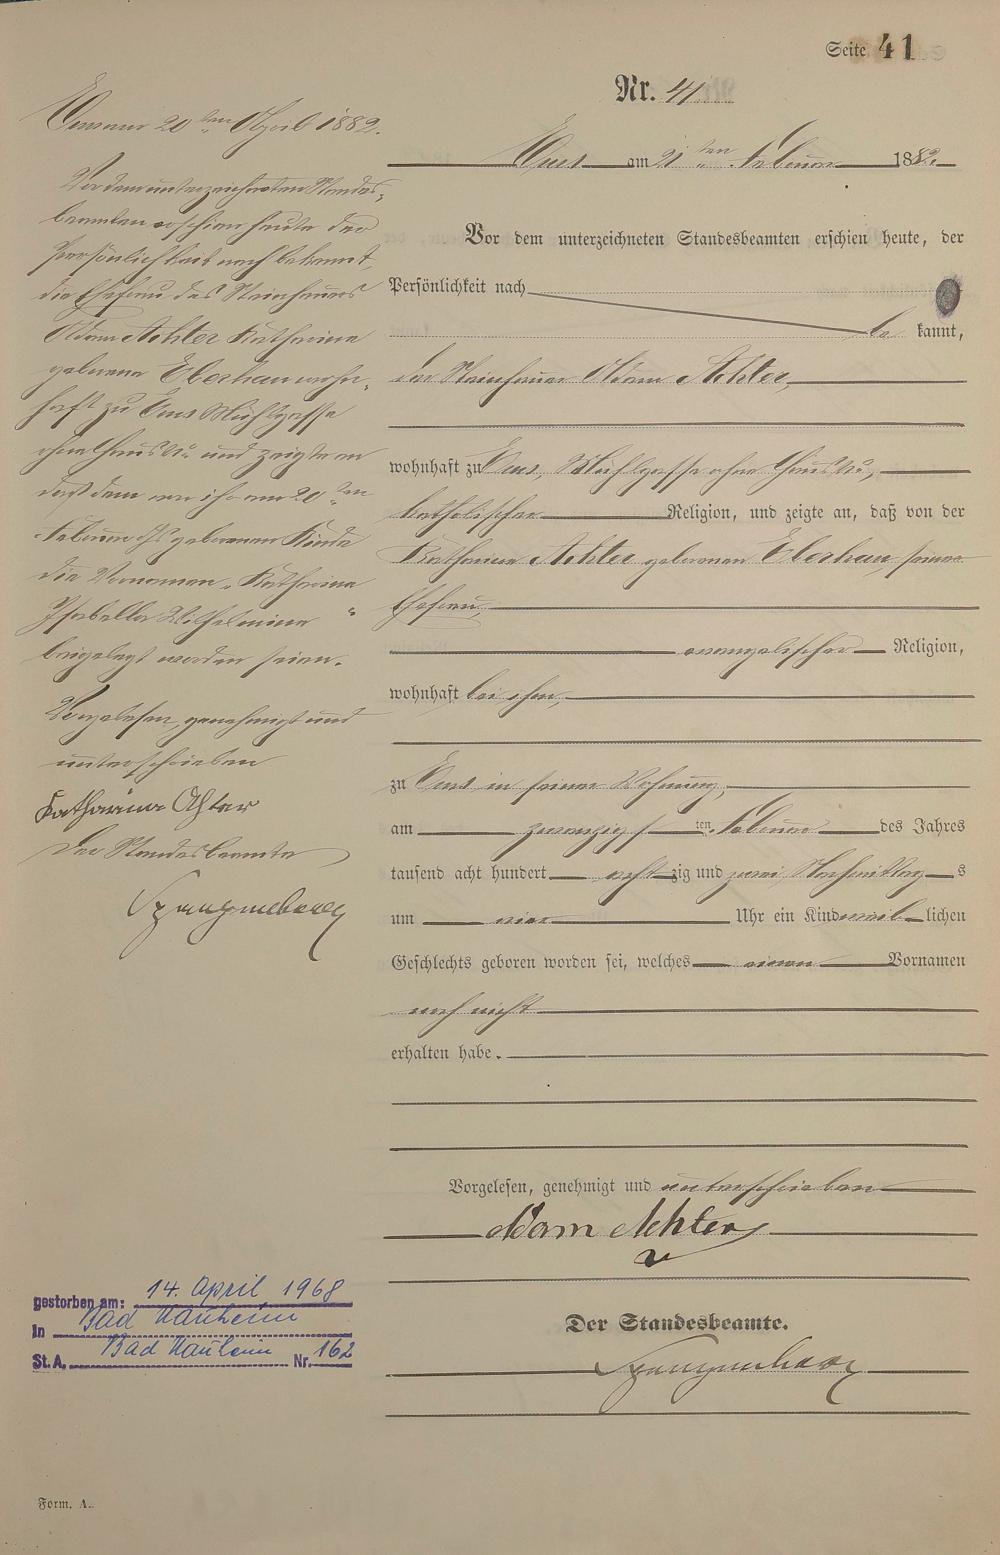 Seite 41
Nr. 41
Ems am 21 ten Februar 1882.
Vor dem unterzeichneten Standesbeamten erschien heute, der
Persönlichkeit nach
be kannt,
der Steinhauer Adam Achter,
wohnhaft zu Ems, Mühlgasse ohne Haus No,
katholischer Religion, und zeigte an, daß von der
Katharina Achter geborenen Eberhau, seiner
Ehefrau,
evangelischer Religion,
wohnhaft bei ihm,
zu Ems in seiner Wohnung,
am zwanzigsten Februar des Jahres
tausend acht hundert acht zig und zwei Nachmittags
um vier Uhr ein Kind weiblichen
Geschlechts geboren worden sei, welches einen Vornamen
noch nicht
erhalten habe.
Vorgelesen, genehmigt und unterschrieben
Adam Achter
Der Standesbeamte.
Ems am 20 ten April 1882.
Vor dem unterzeichneten Standes-
beamten erschien heute der
Persönlichkeit nach bekannt,
die Ehefrau des Steinhauers
Adam Achter Katharina
geborene Eberhau wohn-
haft zu Ems Mühlgasse
ohne Haus No und zeigte an
daß dem von ihr am 20 ten
Februar ds geborenen Kinde
die Vornamen „Katharina
Isabella Wilhelmine“
beigelegt worden seien.
Vorgelesen, genehmigt und
unterschrieben
Katharina Achter
Der Standesbeamte
gestorben am: 14. April 1968
in Bad Nauheim
St.A. Bad Nauheim Nr. 162
Form. A.